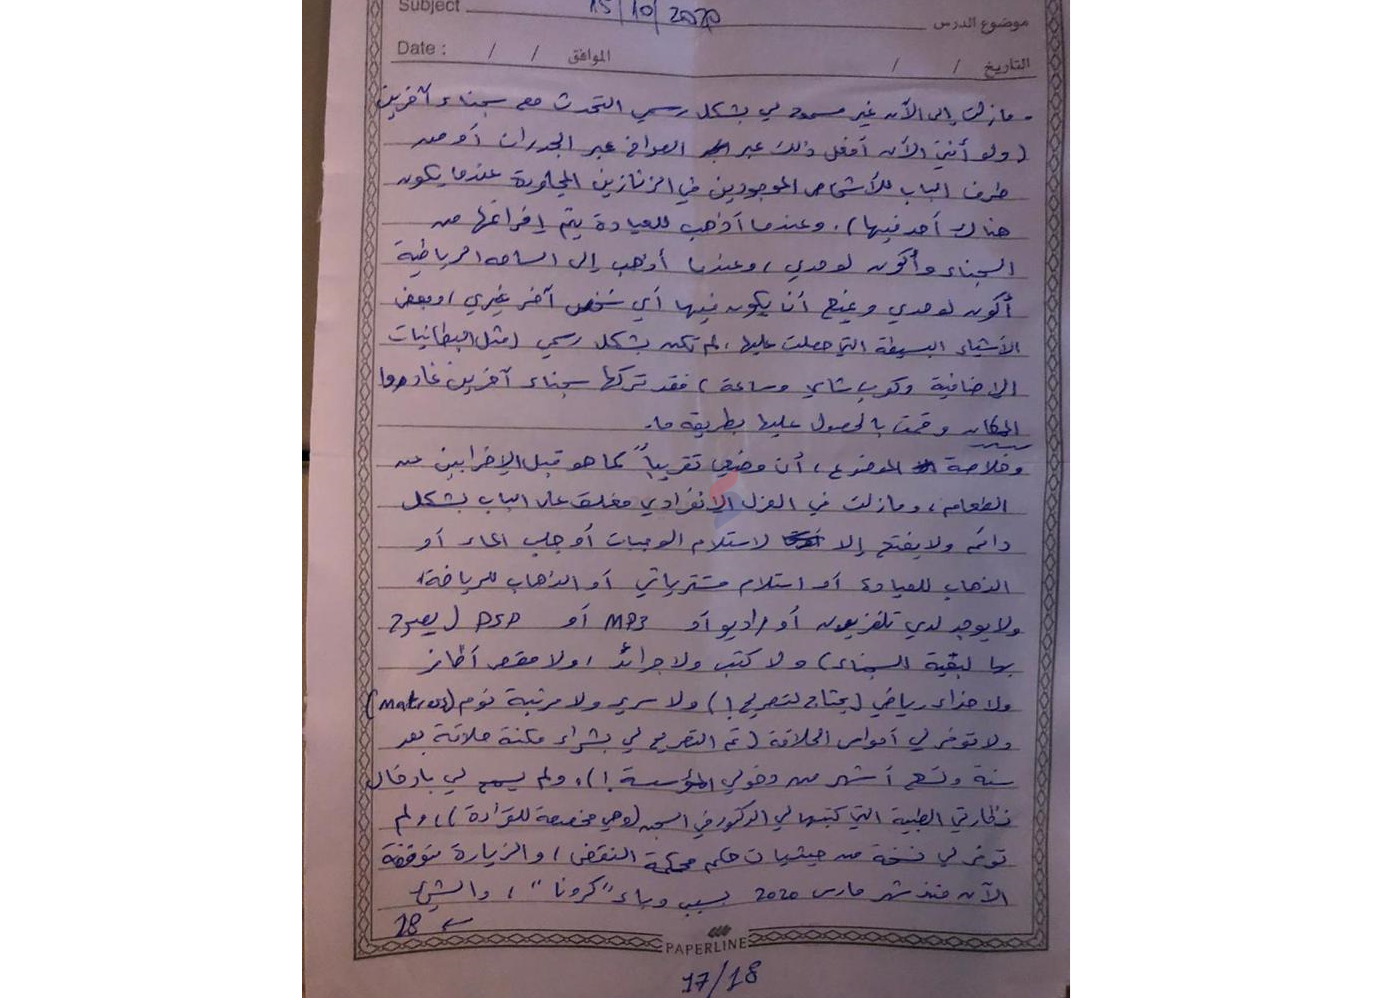 Subject 15/10/2020 موضوع الدرس
Date : / / الموافق / / التاريخ
- مازلت إلى الآن غير مسموح لي بشكل رسمي التحدث مع سجناء آخرين
(ولو أنني الآن أفعل ذلك عبر الصراخ عبر الجدران أو من
طرف الباب للأشخاص الموجودين في الزنازين المجاورة عندما يكون
هناك أحد فيها). وعندما أذهب للعيادة يتم إفراغها من
السجناء وأكون لوحدي، وعندما أذهب إلى الساحة الرياضية
أكون لوحدي ويمنع أن يكون فيها أي شخص آخر غيري، وبعض
الأشياء البسيطة التي حصلت عليها، لم تكن بشكل رسمي (مثل البطانيات
الإضافية وكوب شاي وساعة) فقد تركها سجناء آخرين غادروا
المكان وقمت بالحصول عليها بطريقة ما.
وخلاصة الموضوع، أن وضعي تقريباً كما هو قبل الإضرابين عن
الطعام، ومازلت في العزل الانفرادي مغلق علي الباب بشكل
دائم ولا يفتح إلا لاستلام الوجبات أو جلب الماء أو
الذهاب للعيادة أو استلام مشترياتي أو الذهاب للرياضة،
ولا يوجد لدي تلفزيون أو راديو أو MP3 أو PSP (يصرح
بها لبقية السجناء) ولا كتب ولا جرائد، ولا مقص أظافر
ولا حذاء رياضي (يحتاج لتصريح!) ولا سرير ولا مرتبة نوم (matress)
ولا توفر لي أمواس الحلاقة (تم التصريح لي بشراء مكنة حلاقة بعد
سنة وتسع أشهر من دخولي المؤسسة!)، ولم يسمح لي بإدخال
نظارتي الطبية التي كتبها لي الدكتور في السجن (وهي مخصصة للقراءة)، ولم
توفر لي نسخة من حيثيات حكم محكمة النقض، والزيارة متوقفة
الآن منذ شهر مارس 2020 بسبب وباء "كرونا"، والشيء
18 ←
PAPERLINE
17/18